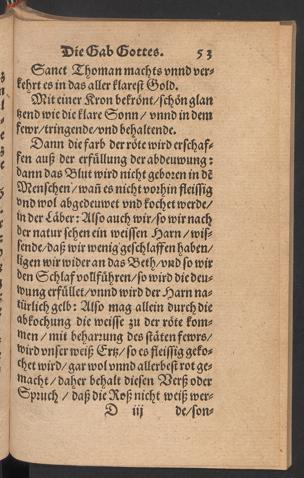 Die Gab Gottes. 53
Sanct Thoman machts vnnd ver-
kehrt es in das aller klarest Gold.
Mit einer Kron bekrönt/ schön glan
tzend wie die klare Sonn/ vnnd in dem
fewr/ tringende/ vnd behaltende.
Dann die farb der röte wird erschaf-
fen auß der erfüllung der abdeuwung:
dann das Blut wird nicht geboren in dẽ
Menschen/ wañ es nicht vorhin fleissig
vnd wol abgedeuwet vnd kochet werde/
in der Läber: Also auch wir/ so wir nach
der natur sehen ein weissen Harn/ wis-
sende/ daß wir wenig geschlaffen haben/
ligen wir wider an das Beth/ vnd so wir
den Schlaf vollführen/ so wird die deu-
wung erfüllet/ vnnd wird der Harn na-
türlich gelb: Also mag allein durch die
abkochung die weisse zu der röte kom-
men/ mit beharrung des stäten fewrs/
wird vnser weiß Ertz/ so es fleissig geko-
chet wird/ gar wol vnnd allerbest rot ge-
macht/ daher behalt diesen Verß oder
Spruch/ daß die Roß nicht weiß wer-
D iij de/ son-